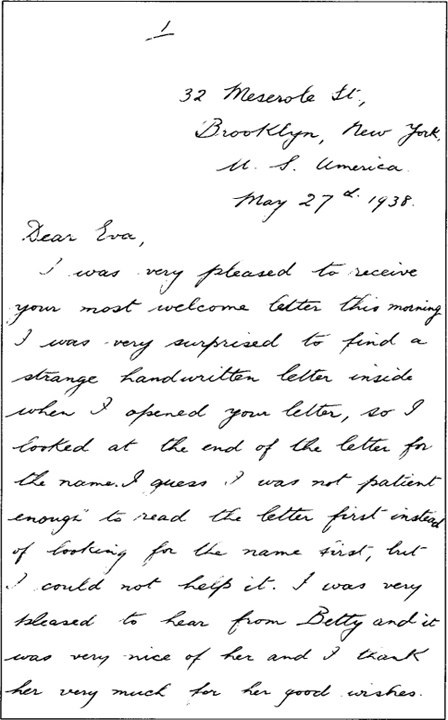 1
32 Meserole St.,
Brooklyn, New York,
U. S. America.
May 27d. 1938.
Dear Eva,
I was very pleased to receive
your most welcome letter this morning
I was very surprised to find a
strange handwritten letter inside
when I opened your letter, so I
looked at the end of the letter for
the name. I guess I was not patient
enough to read the letter first instead
of looking for the name first, but
I could not help it. I was very
pleased to hear from Betty and it
was very nice of her and I thank
her very much for her good wishes.